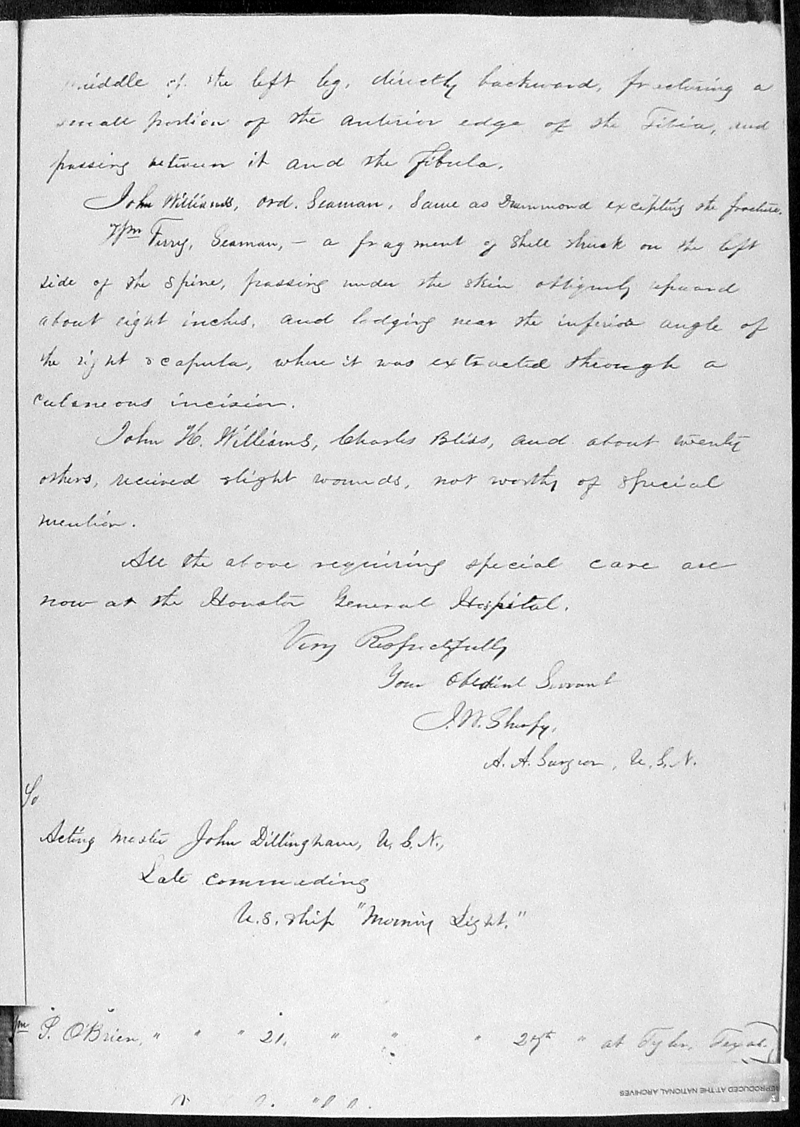 middle of the left leg, directly backward, fracturing a
small portion of the anterior edge of the Tibia, and
passing between it and the Fibula.
John Williams, Ord. Seaman, Same as Drummond excepting the fracture.
Wm Terry, Seaman, – a fragment of shell struck on the left
side of the spine, passing under the skin obliquely upward
about eight inches, and lodging near the inferior angle of
the right scapula, where it was extracted through a
cutaneous incision.
John H. Williams, Charles Bliss, and about twenty
others, received slight wounds, not worthy of special
mention.
All the above requiring special care are
now at the Houston General Hospital.
Very Respectfully
Your Obedient Servant
J. W. Sherfy,
A. A. Surgeon, U. S. N.
To
Acting Master John Dillingham, U. S. N.,
Late commanding
U. S. Ship "Morning Light."
Wm P. O'Brien, " " " 21, " " " 27th " at Tyler, Texas.
REPRODUCED AT THE NATIONAL ARCHIVES